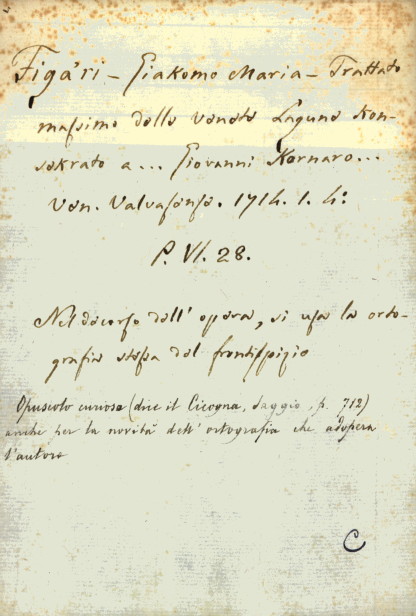 Figari - Giakomo Maria - Trattato
massimo della veneta Laguna kon-
sakrato a ... Giovanni Kornaro ...
Ven. Valvasense. 1714. 1. 4:
P. VI. 28.
Nel decorso dell' opera, si usa la orto-
grafia stessa del frontispizio
Opuscolo curioso (dice il Cicogna, Saggio, p. 712)
anche per la novità dell' ortografia che adopera
l'autore
C